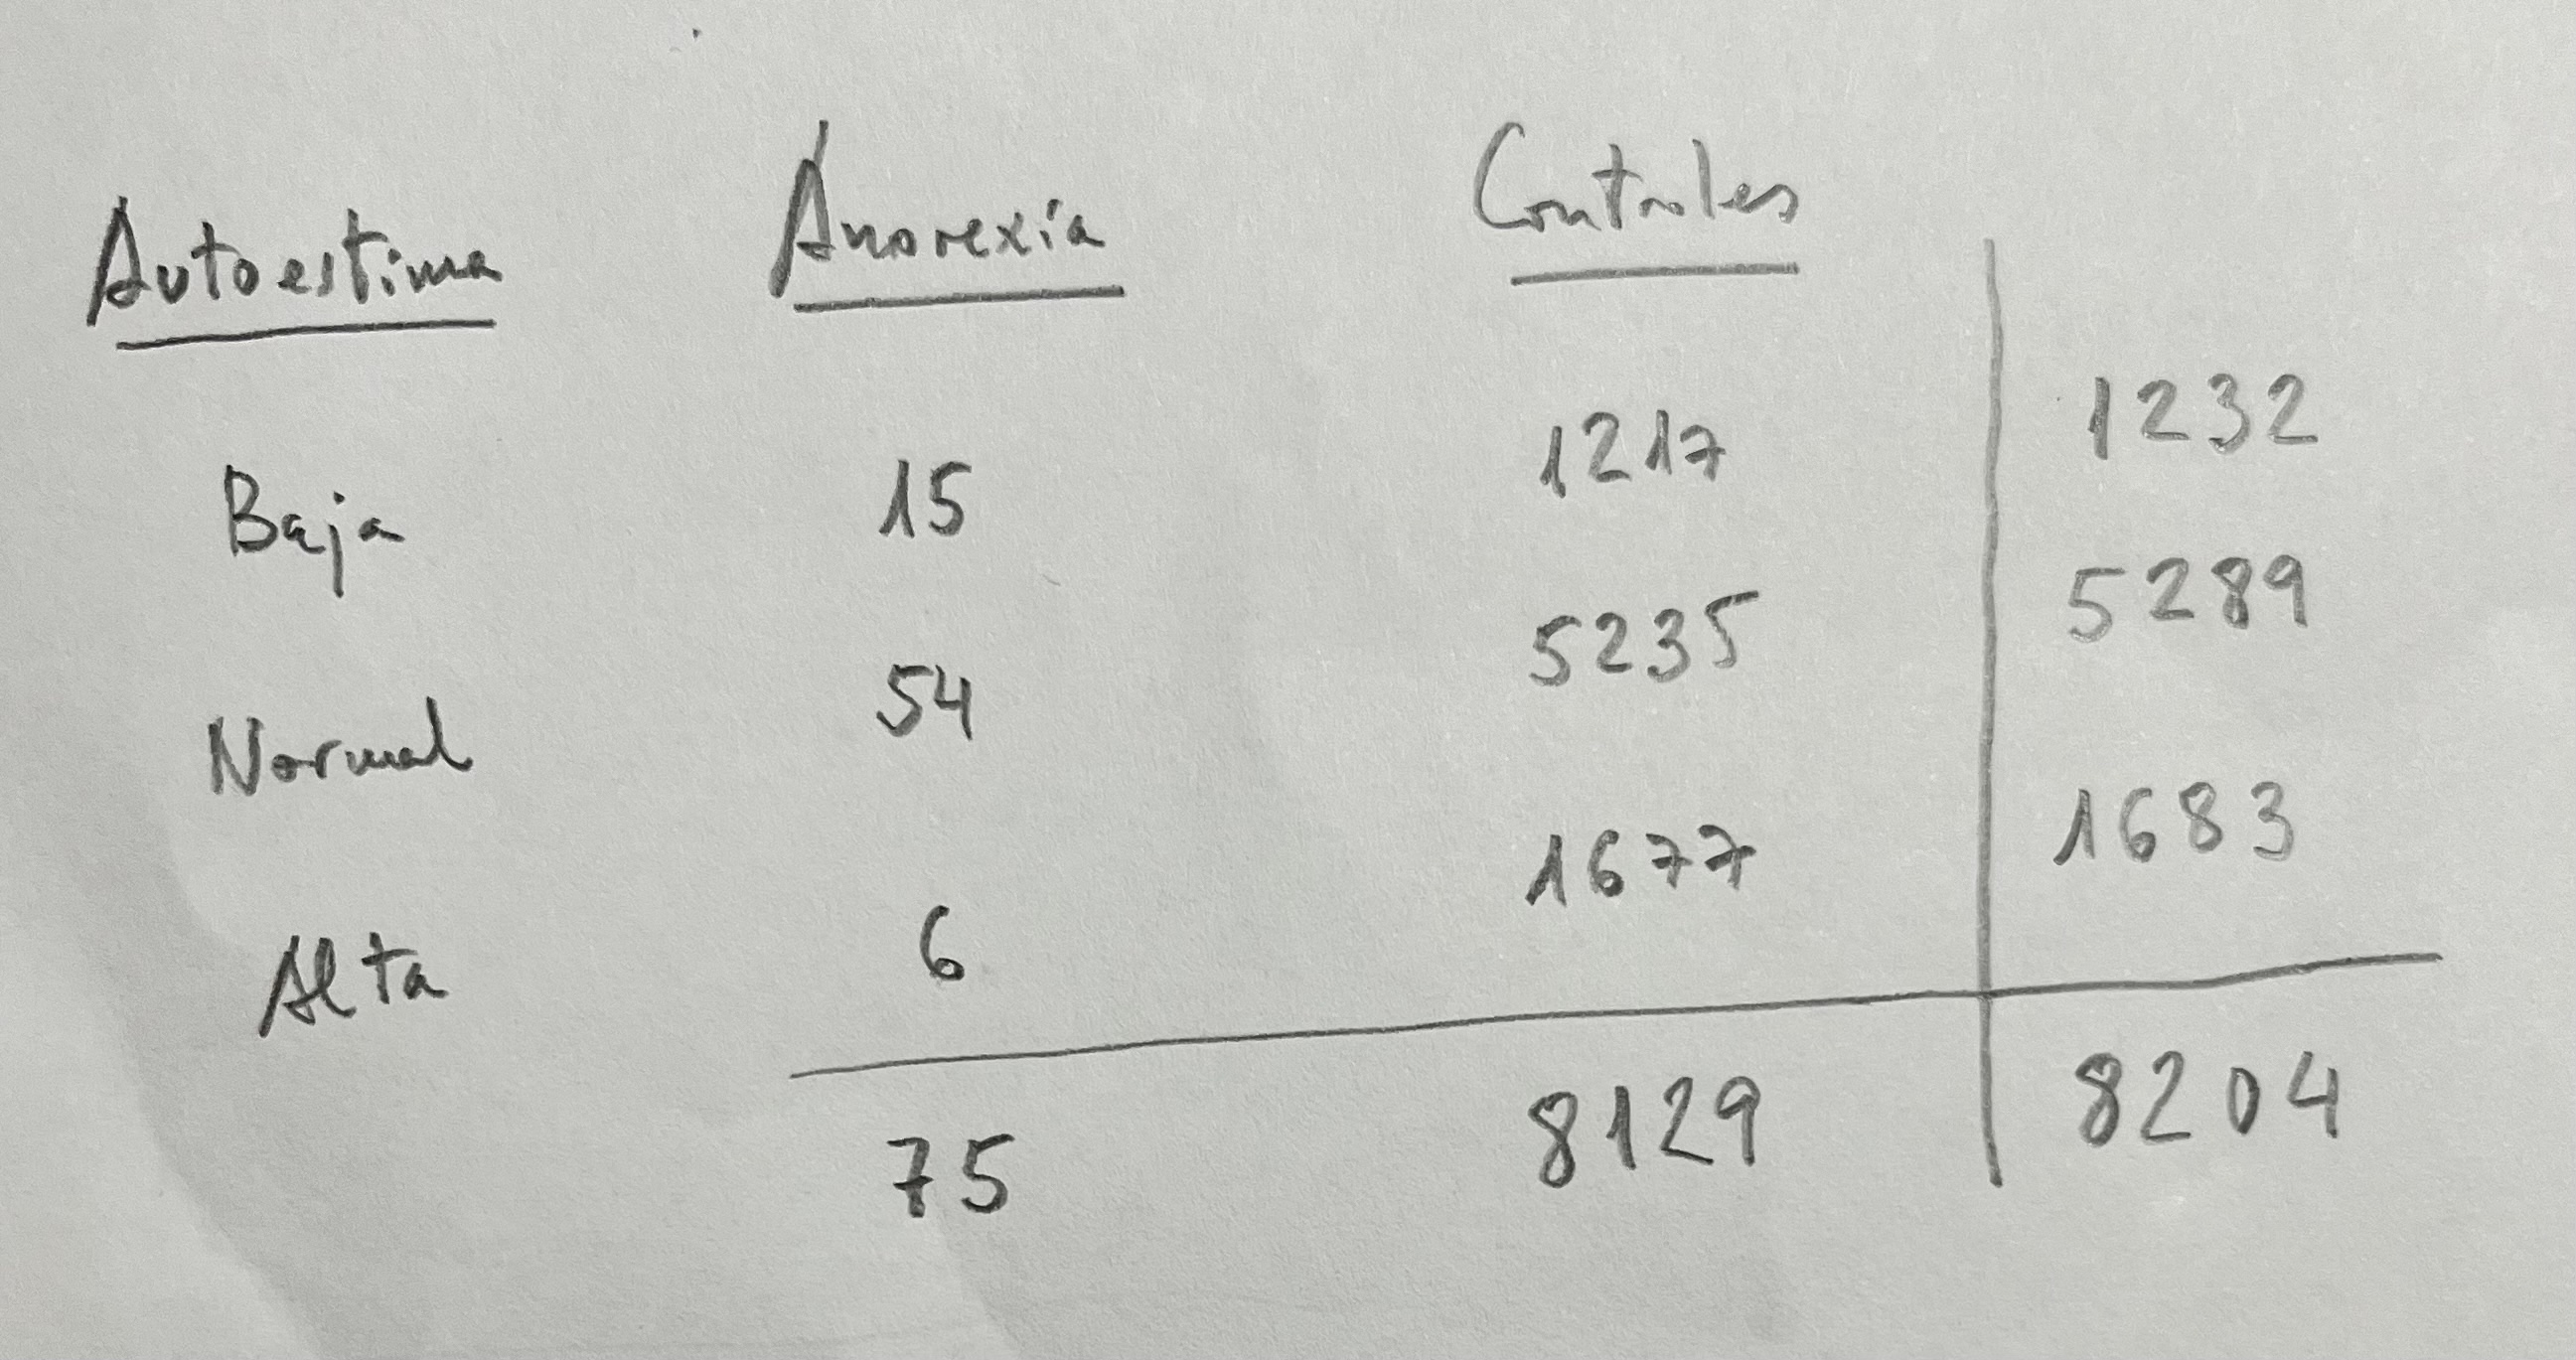 Autoestima Anorexia Controles
Baja 15 1217 1232
Normal 54 5235 5289
Alta 6 1677 1683
75 8129 8204